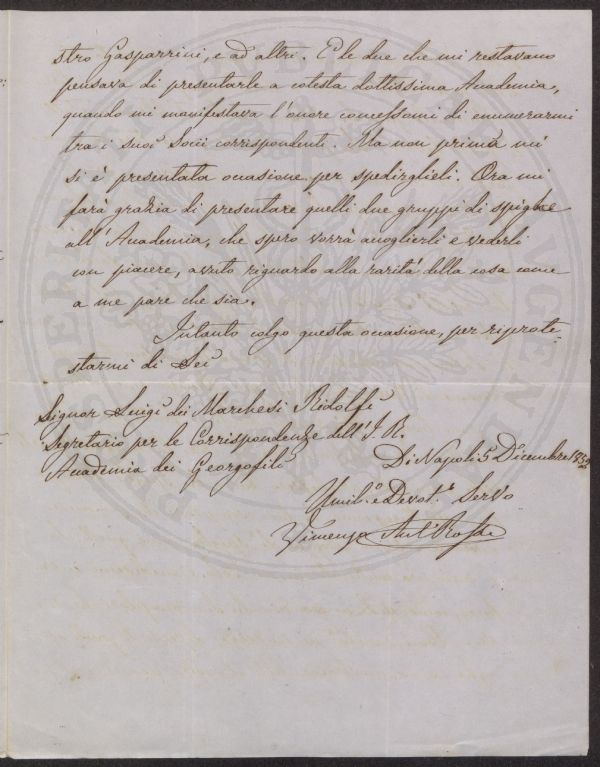 stro Gasparrini, e ad altri. E le due che mi restavano
pensava di presentarle a cotesta dottissima Academia,
quando mi manifestava l'onore concessomi di enumerarmi
tra i suoi Socii corrispondenti. Ma non prima mi
si è presentata occasione per spedirglieli. Ora mi
farà grazia di presentare quelli due gruppi di spighe
all'Academia, che spero vorrà accoglierli e vederli
con piacere, avuto riguardo alla rarità della cosa come
a me pare che sia.
Intanto colgo questa occasione, per riprote-
starmi di Lei
Signor Luigi dei Marchesi Ridolfi
Segretario per le Corrispondenze dell'I. R.
Academia dei Georgofili
Di Napoli 5 Dicembre
Umil.o e Devot.o Servo
Vincenzo Ant.o Rossi